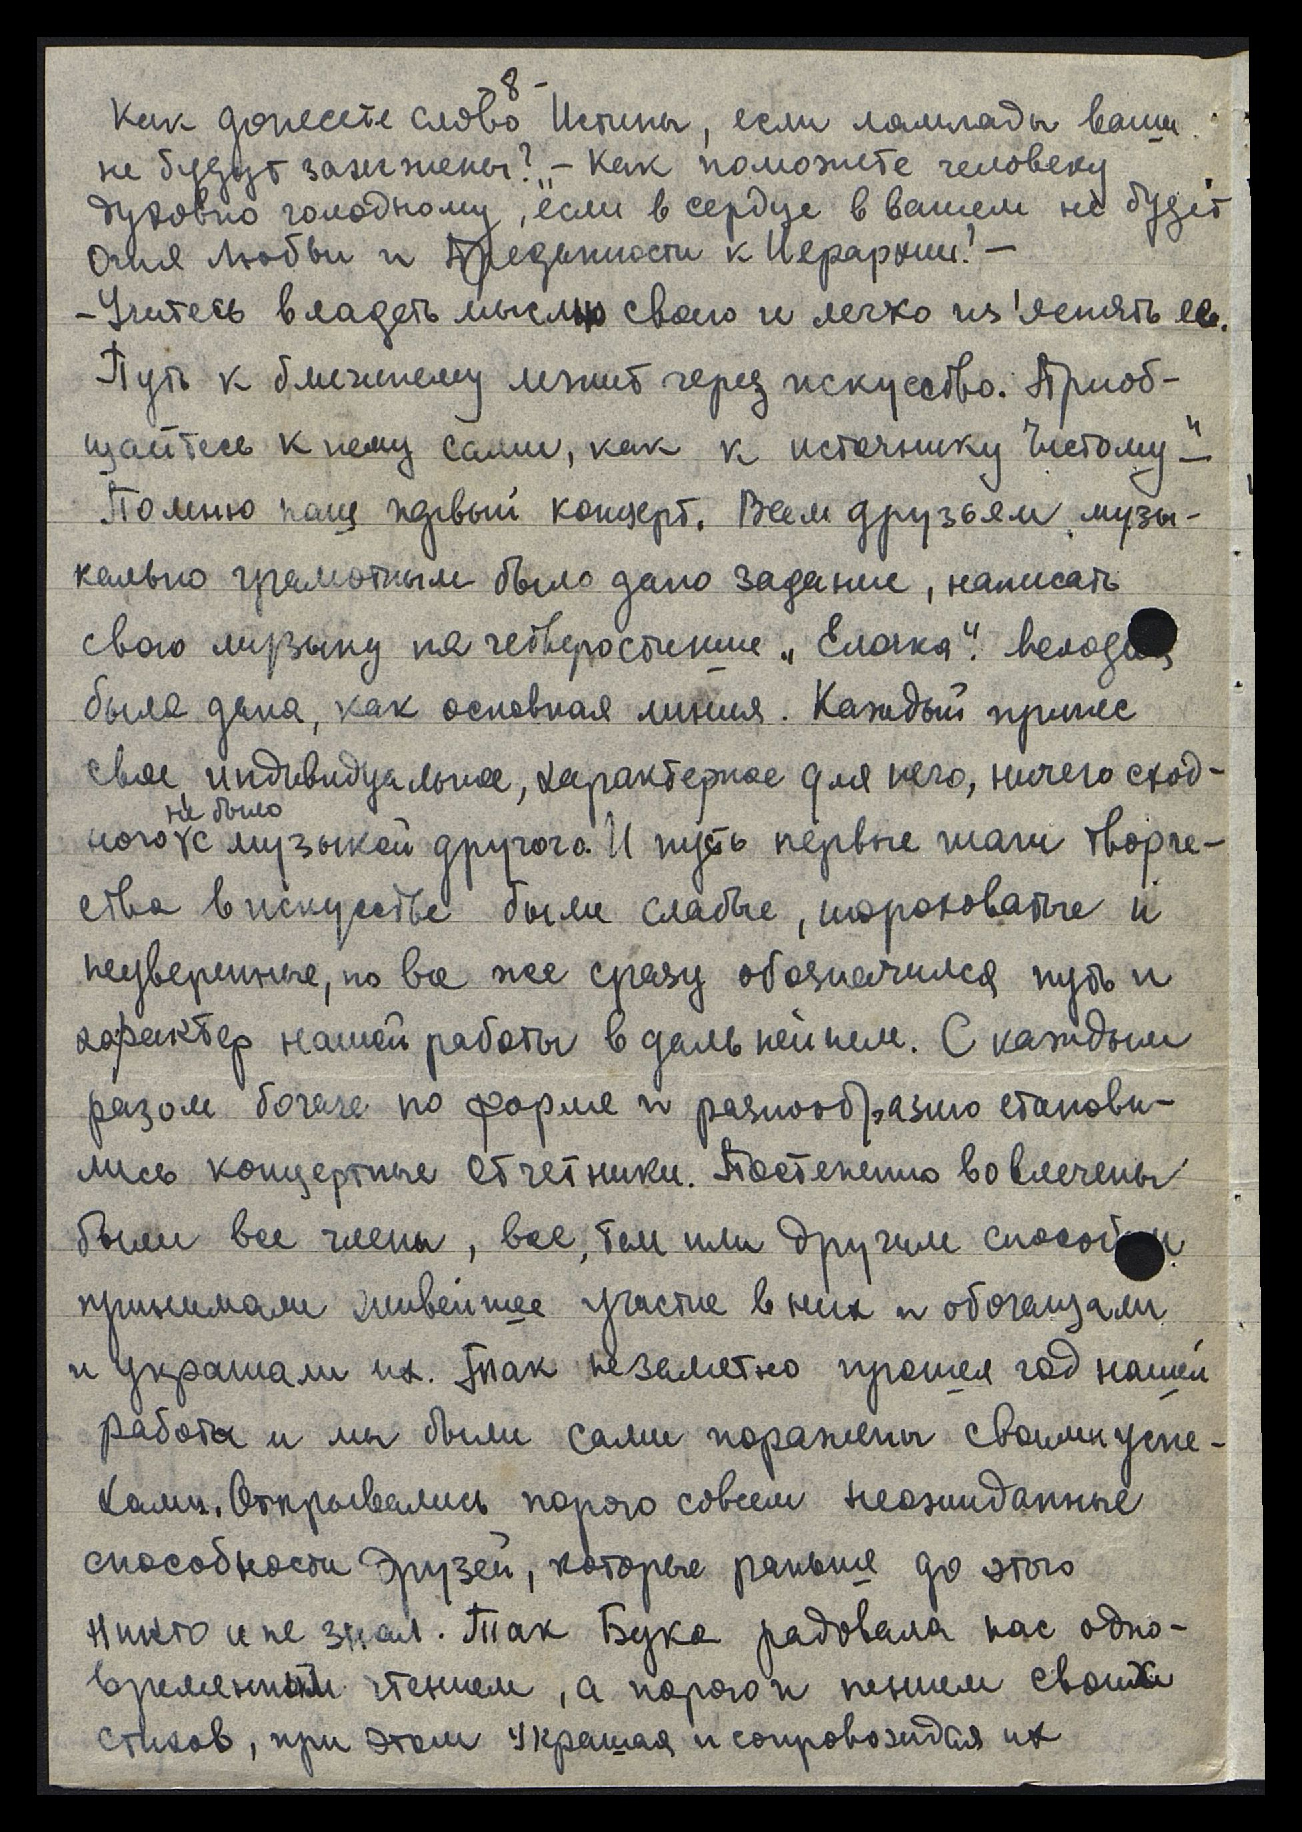 -8-
Как донесете слово Истины, если лампады ваши
не будут зажжены? - Как поможете человеку
духовно голодному, если в сердце в вашем не будет
Огня Любви и Преданности к Иерархии! -
- Учитесь владеть мыслью своею и легко из'яснять ее.
Путь к ближнему лежит через искусство. Приоб-
щайтесь к нему сами, как к источнику Чистому" -
Помню наш первый концерт. Всем друзьям музы-
кально грамотным было дано задание, написать
свою музыку на четверостишие „Елочка". Мелодия
была дана, как основная линия. Каждый принес
свое индивидуальное, характерное для него, ничего сход-
не было
ного с музыкой другого. И пусть первые шаги творче-
ства в искусстве были слабые, шороховатые и
неуверенные, но все же сразу обозначился путь и
характер нашей работы в дальнейшем. С каждым
разом богаче по форме и разнообразию станови-
лись концертные отчетники. Постепенно вовлечены
были все члены, все, тем или другим способом
принимали живейшее участие в них и обогащали
и украшали их. Так незаметно прошел год нашей
работы и мы были сами поражены своими успе-
хами. Открывались порою совсем неожиданные
способности друзей, которые раньше до этого
никто и не знал. Так Бука радовала нас одно-
временным чтением, а порою и пением своих
стихов, при этом украшая и сопровождая их